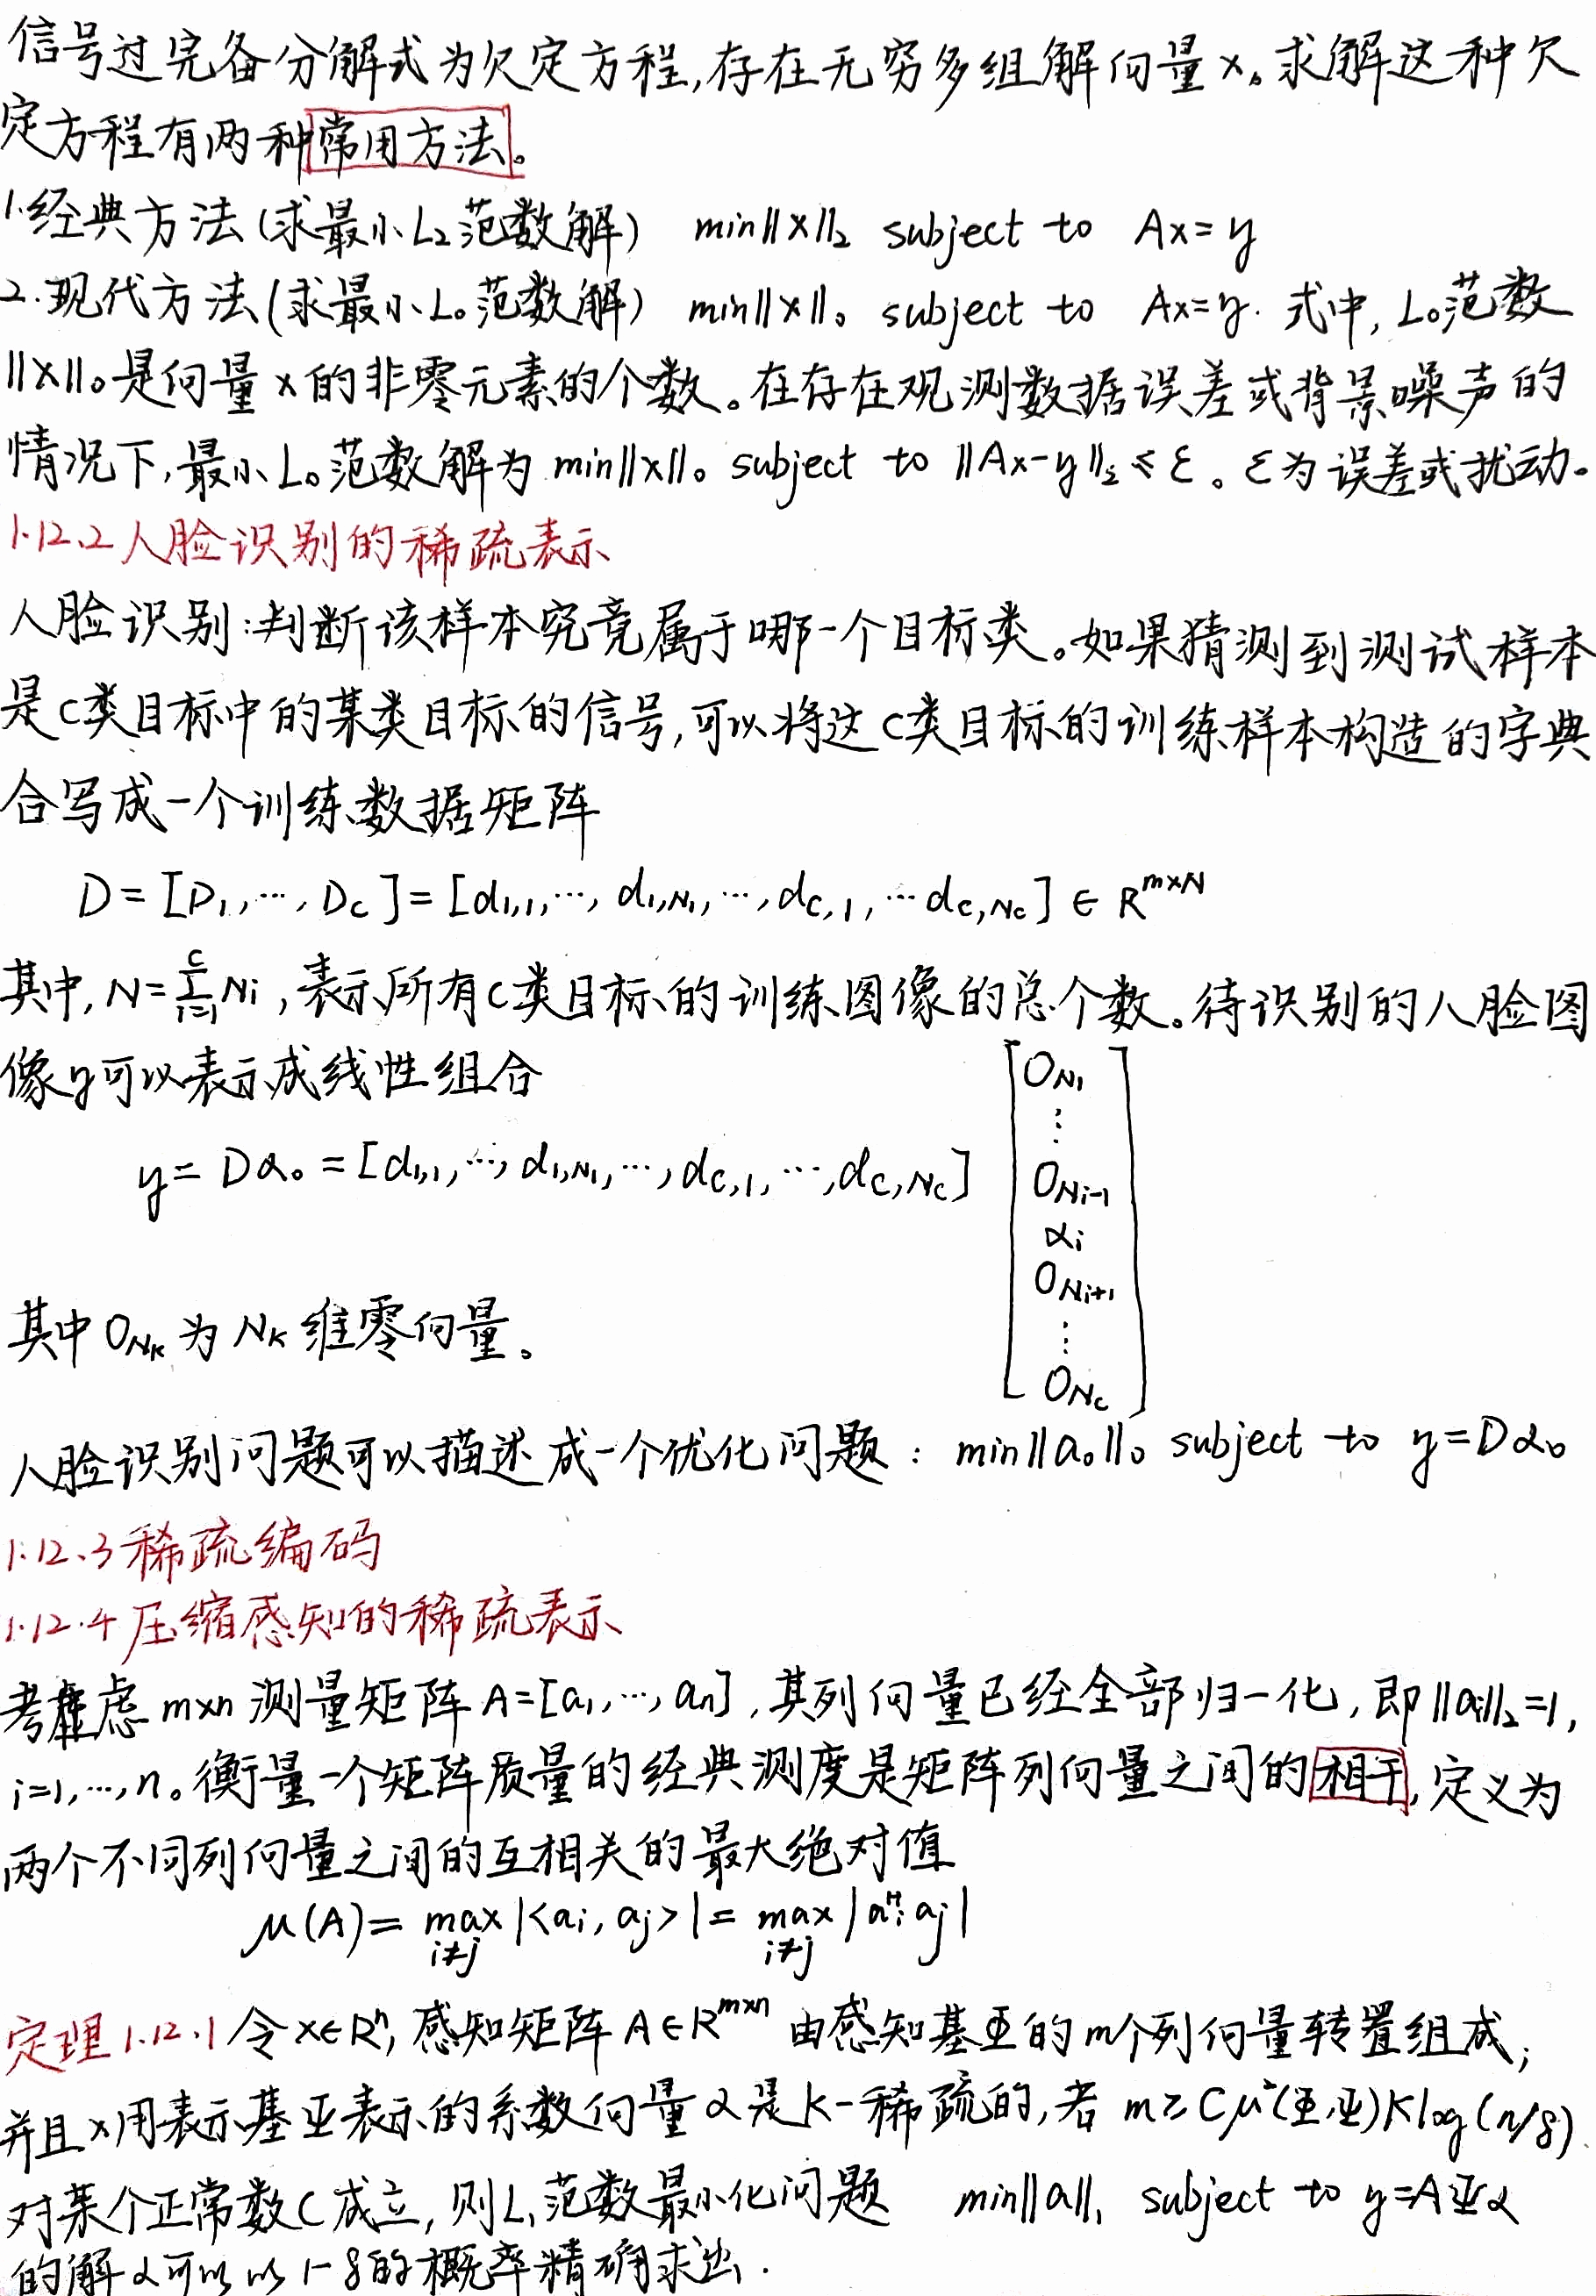 信号过完备分解式为欠定方程,存在无穷多组解向量x。求解这种欠
定方程有两种常用方法。
1.经典方法(求最小L₂范数解) min||x||₂ subject to Ax=y
2.现代方法(求最小L₀范数解) min||x||₀ subject to Ax=y. 式中, L₀范数
||x||₀是向量x的非零元素的个数。在存在观测数据误差或背景噪声的
情况下,最小L₀范数解为 min||x||₀ subject to ||Ax-y||₂≤ε。ε为误差或扰动。
1.12.2人脸识别的稀疏表示
人脸识别:判断该样本究竟属于哪一个目标类。如果猜测到测试样本
是C类目标中的某类目标的信号,可以将这C类目标的训练样本构造的字典
合写成一个训练数据矩阵
D=[D₁,…,D_C]=[d_{1,1},…,d_{1,N₁},…,d_{C,1},…d_{C,N_C}]∈R^{m×N}
其中,N=∑_{i=1}^{C}N_i,表示所有C类目标的训练图像的总个数。待识别的人脸图
像y可以表示成线性组合
y=Dα₀=[d_{1,1},…,d_{1,N₁},…,d_{C,1},…,d_{C,N_C}]
0_{N₁}
⋮
0_{N_{i-1}}
α_i
0_{N_{i+1}}
⋮
0_{N_C}
其中0_{N_K}为N_K维零向量。
人脸识别问题可以描述成一个优化问题: min||a₀||₀ subject to y=Dα₀
1.12.3稀疏编码
1.12.4压缩感知的稀疏表示
考虑m×n测量矩阵A=[a₁,…,a_n],其列向量已经全部归一化,即||a_i||₂=1,
i=1,…,n。衡量一个矩阵质量的经典测度是矩阵列向量之间的相干,定义为
两个不同列向量之间的互相关的最大绝对值
μ(A)=max_{i≠j}|<a_i,a_j>|=max_{i≠j}|a_i^H a_j|
定理1.12.1令x∈Rⁿ,感知矩阵A∈R^{m×n}由感知基Φ的m个列向量转置组成;
并且x用表示基Ψ表示的系数向量α是K-稀疏的,若 m≥Cμ²(Φ,Ψ)Klog(n/δ)
对某个正常数C成立,则L₁范数最小化问题 min||a||₁ subject to y=AΨα
的解α可以以1-δ的概率精确求出.